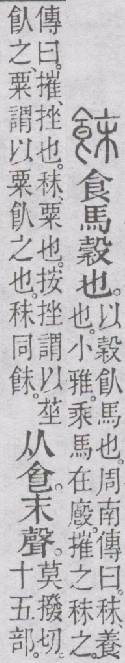 䬴 食馬穀也。以穀飤馬也。周南傳曰。秣、養
也。小雅。乘馬在廄。摧之秣之。
傳曰。摧、挫也。秣、粟也。按挫謂以莝
飤之。粟謂以粟飤之也。秣同䬴。从食末聲。莫撥切。
十五部。